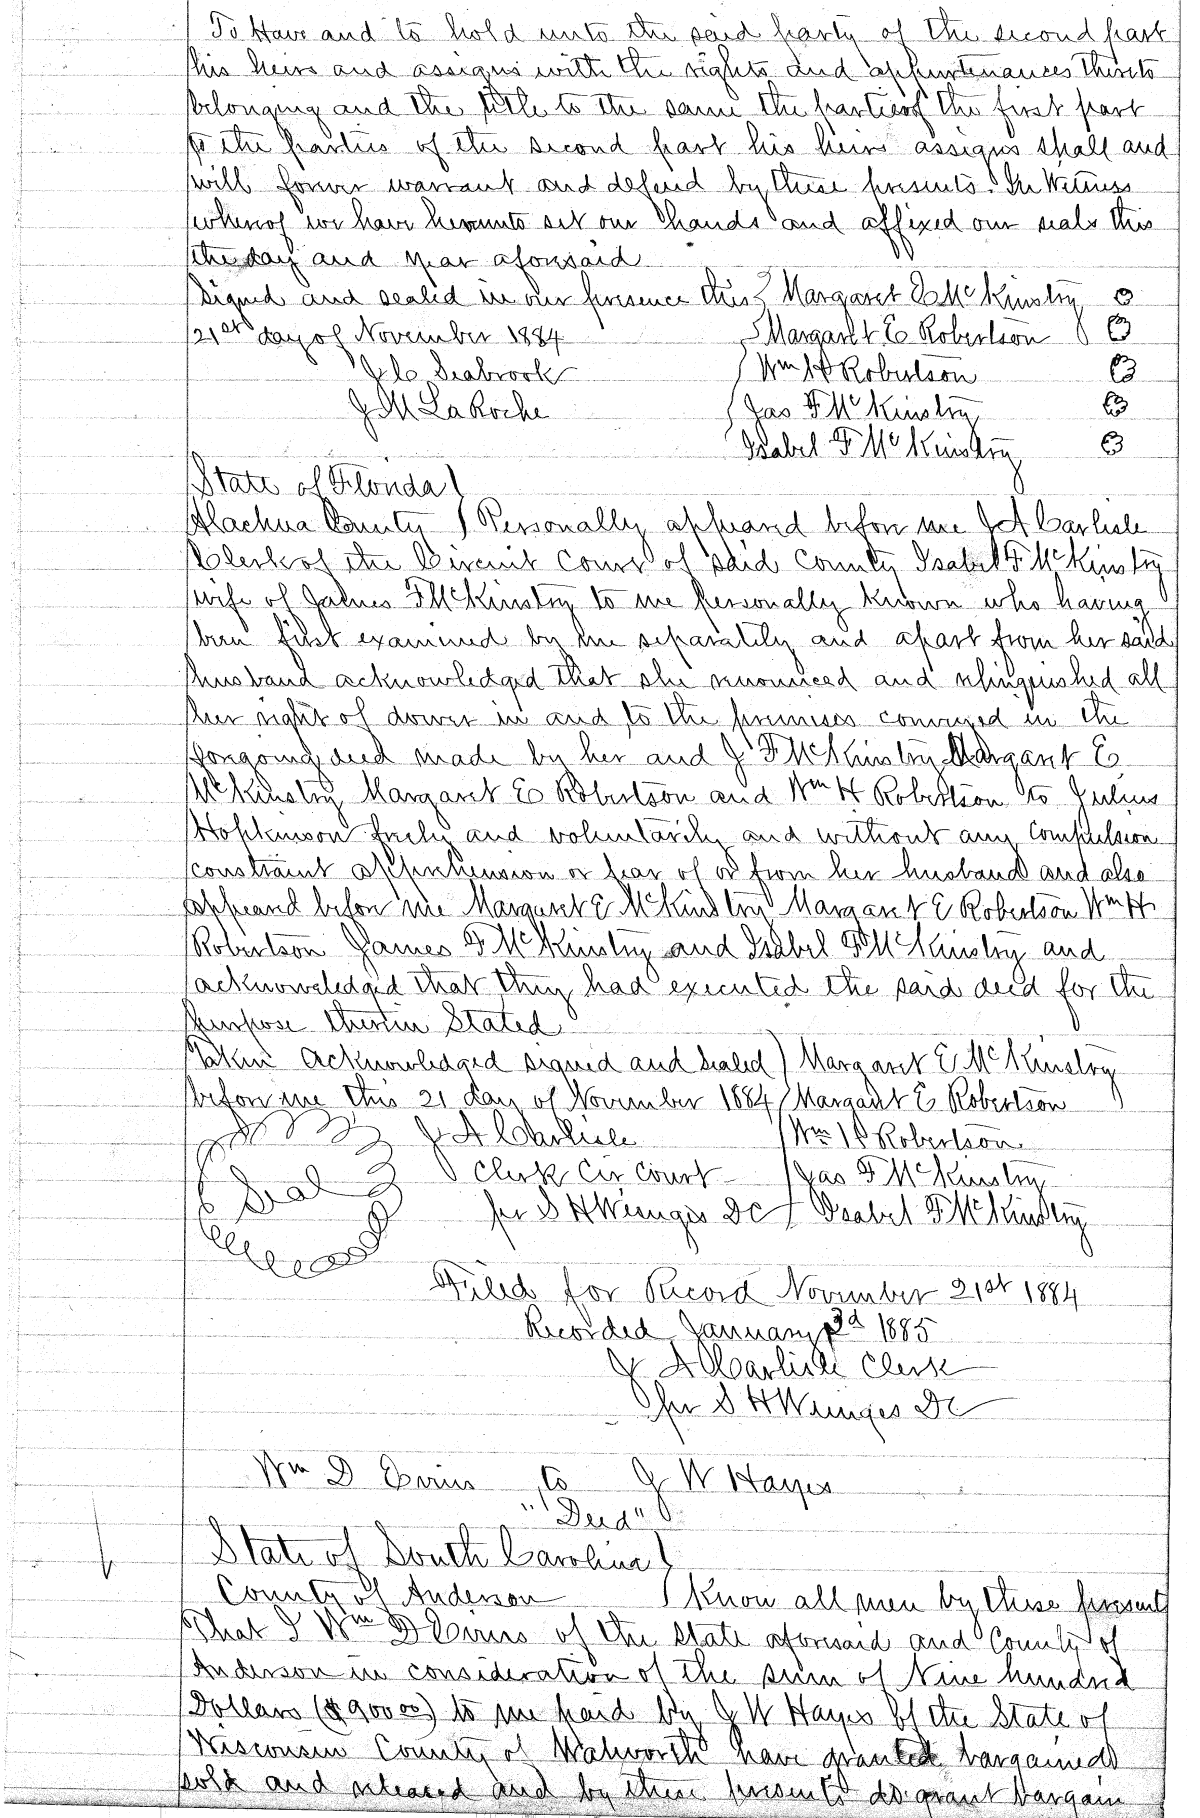 To Have and to hold unto the said party of the second part
his heirs and assigns with the rights and appurtenances thereto
belonging and the title to the same the parties of the first part
to the parties of the second part his heirs assigns shall and
will forever warrant and defend by these presents. In Witness
whereof we have hereunto set our hands and affixed our seals this
the day and year aforesaid
Signed and sealed in our presence this Margaret E McKinstry
21st day of November 1884 Margaret E Robertson
J C Seabrook Wm H Robertson
J M LaRoche Jas F McKinstry
Isabel F McKinstry
State of Florida
Alachua County Personally appeared before me J A Carlisle
Clerk of the Circuit Court of said County Isabel F McKinstry
wife of James F McKinstry to me personally known who having
been first examined by me separately and apart from her said
husband acknowledged that she renounced and relinquished all
her right of dower in and to the premises conveyed in the
foregoing deed made by her and J F McKinstry Margaret E
McKinstry Margaret E Robertson and Wm H Robertson to Julius
Hopkinson freely and voluntarily and without any compulsion
constraint apprehension or fear of or from her husband and also
appeared before me Margaret E McKinstry Margaret E Robertson Wm H
Robertson James F McKinstry and Isabel F McKinstry and
acknowledged that they had executed the said deed for the
purpose therein stated
Taken acknowledged signed and sealed Margaret E McKinstry
before me this 21 day of November 1884 Margaret E Robertson
J A Carlisle Wm H Robertson
Seal Clerk Cir Court Jas F McKinstry
per S H Wienges DC Isabel F McKinstry
Filed for Record November 21st 1884
Recorded January 1885
J A Carlisle Clerk
per S H Wienges DC
Wm D to J W Hayes
"Deed"
State of South Carolina
County of Anderson Know all men by these presents
That I Wm D of the State aforesaid and County of
Anderson in consideration of the sum of Nine hundred
Dollars ($900 00) to me paid by J W Hayes of the State of
Wisconsin County of Walworth have granted bargained
sold and released and by these presents do grant bargain